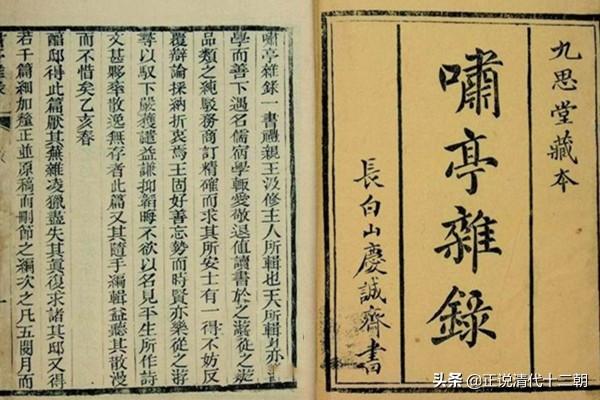 九思堂藏本
嘯亭雜錄
長白山慶誠齋書
嘯亭雜錄一書禮親王汲修主人所輯也
學而善下遇名儒宿學輒愛敬退值讀書於之游從之
品類之純駁務商訂精確而求其所安士有一得不妨反
覆辯論採納折衷焉王固好善忘勢而時賢亦樂從之游
尋以馭下嚴獲譴益謙抑韜晦不欲以名見平生所作詩
文甚夥率散逸無存者此篇又其隨手編輯益聽其散漫
而不惜矣乙亥春
邸得此篇厭其蕪雜凌獵盡失其真復求諸其邸又得
若干篇細加釐正並原稿而刪節之編次之凡五閱月而
头条 @正说清代十二朝